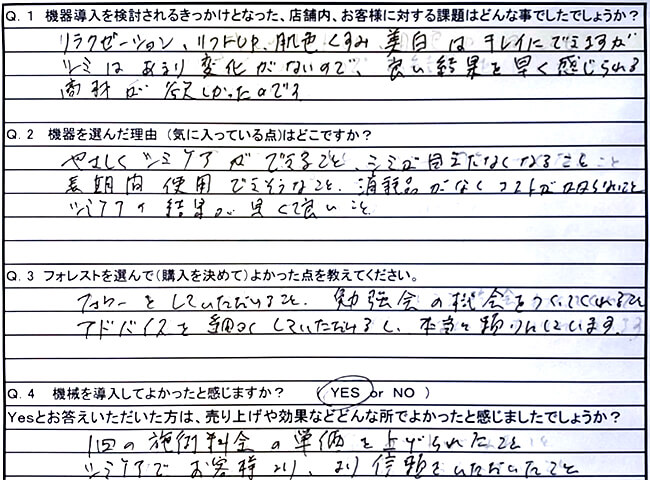 Q. 1 機器導入を検討されるきっかけとなった、店舗内、お客様に対する課題はどんな事でしたでしょうか？
リラクゼーション、リフトUP、肌色くすみ 美白 は キレイにできますが
シミは あまり 変化がないので、良い結果を早く感じられる
商材が 欲しかったのです
Q. 2 機器を選んだ理由 （気に入っている点）はどこですか？
やさしく シミケア ができること、シミが目立たなくなること
長期間 使用 できそうなこと、消耗品がなく コストがかからないこと
シミケアの 結果が 早くて良いこと
Q. 3 フォレストを選んで（購入を決めて）よかった点を教えてください。
フォローをしていただけること、勉強会の機会をつくってくれること
アドバイスを 細かくしていただけるし、本当に頼りにしています。
Q. 4 機械を導入してよかったと感じますか？ （ YES or NO ）
Yesとお答えいただいた方は、売り上げや効果などどんな所でよかったと感じましたでしょうか？
1回の施術料金の単価を上げられたこと
シミケアで お客様より、より信頼をいただいたこと